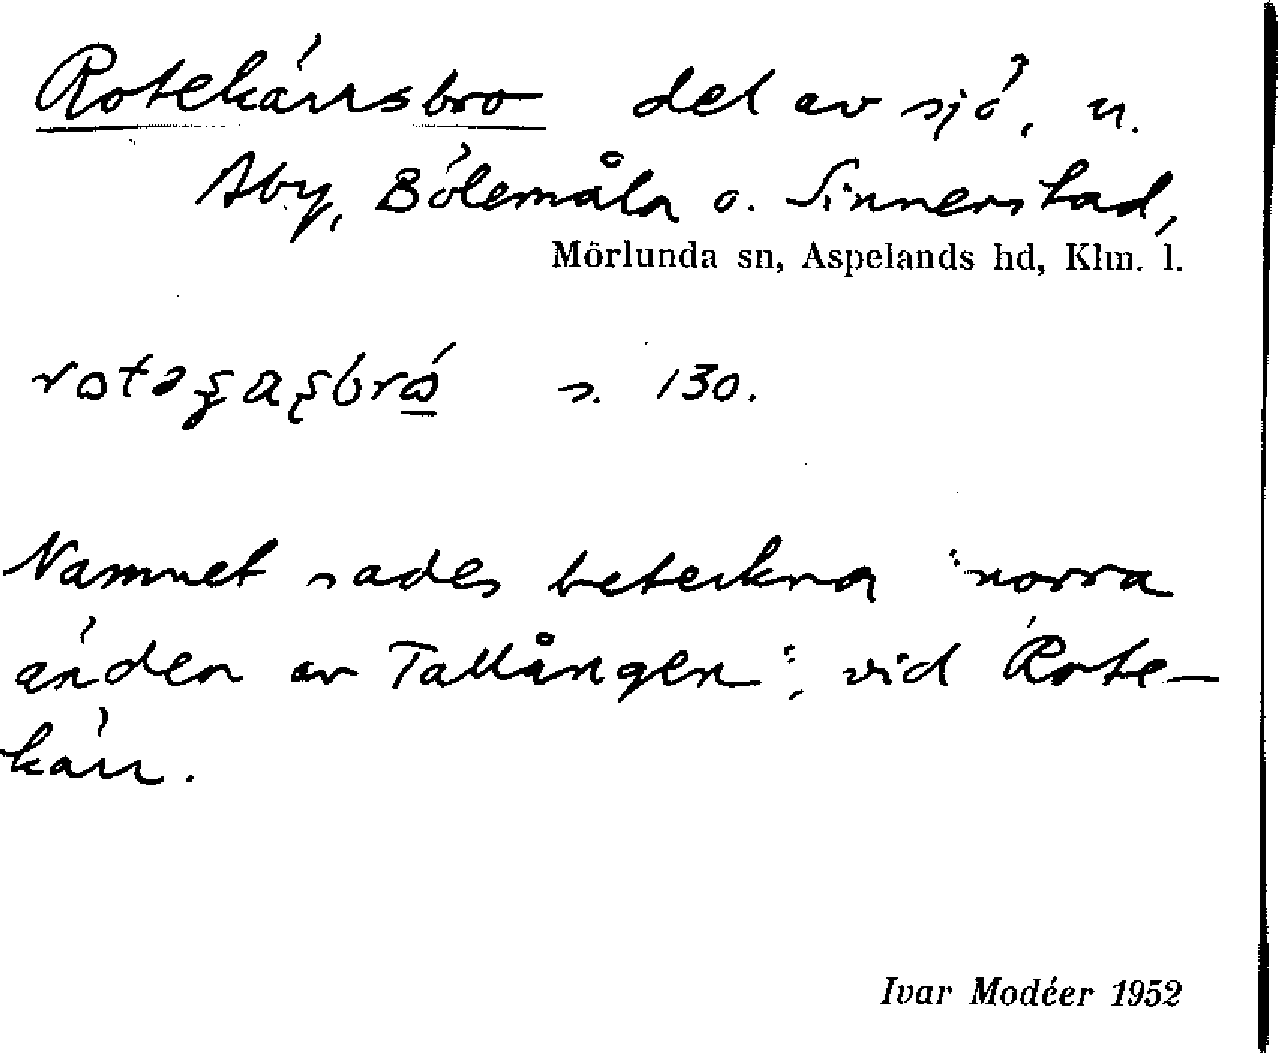 Rotekärrsbro del av sjö, u.
Åby, Bölemåla o. Sinnerstad,
Mörlunda sn, Aspelands hd, Klm. l.
s. 130.
Namnet sades beteckna "norra
änden av Tallången", vid Rote-
kärr.
Ivar Modéer 1952